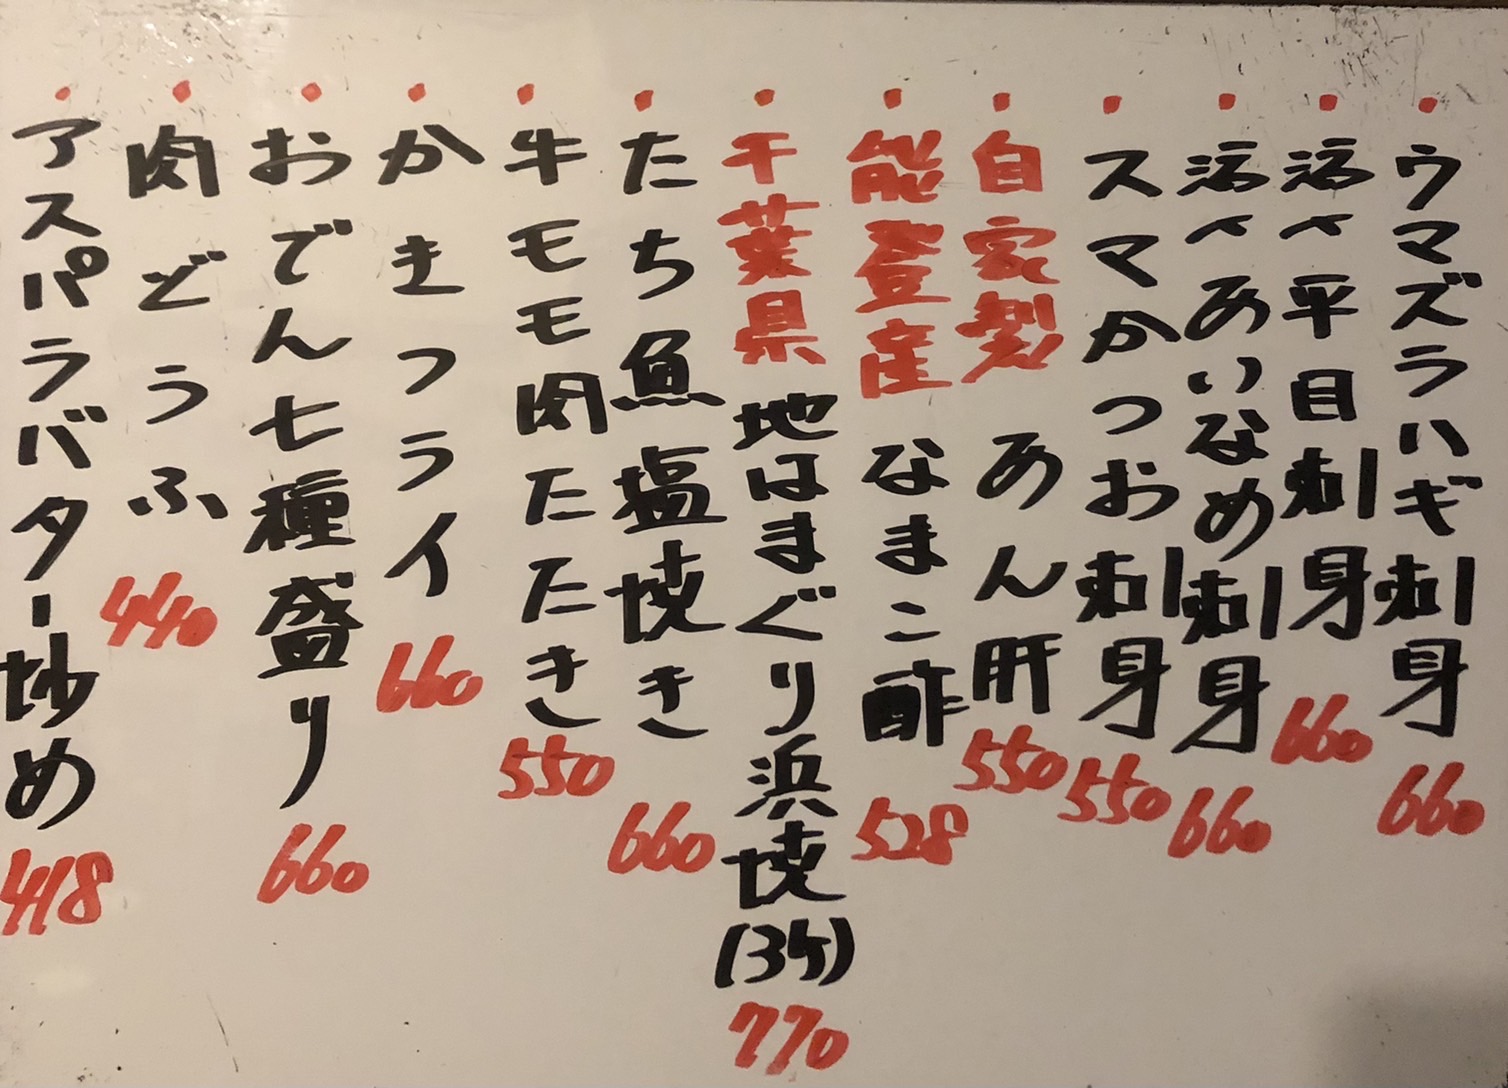 ・ウマズラハギ刺身 660
・活〆平目刺身 660
・活〆あいなめ刺身 660
・スマかつお刺身 550
・自家製 あん肝 550
・能登産 なまこ酢 528
・千葉県 地はまぐり浜焼(3ヶ) 770
・たち魚塩焼き 660
・牛モモ肉たたき 550
・かきフライ 660
・おでん七種盛り 660
・肉どうふ 440
・アスパラバター炒め 418